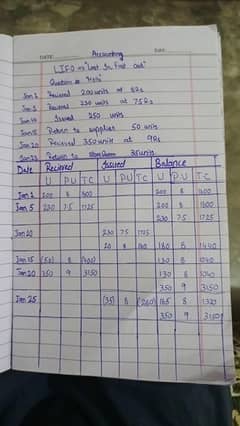 DATE
DATE
Accounting
LIFO → "Last In First out"
Question = 
Jan 1 Recieved 200 units at 8Rs
Jan 5 Recieved 230 units at 7.5Rs
Issued 250 units
Jan 15 Return to supplier 50 units
Jan 20 Recieved 350 units at 9Rs
Jan 25 Return to 35 units
Date Recieved Issued Balance
U P.U T.C U P.U T.C U P.U T.C
Jan 1 200 8 200 8 1600
Jan 5 230 7.5 1725 200 8 1600
230 7.5 1725
Jan 10 230 7.5 1725
20 8 160 180 8 1440
Jan 15 (50) 8 (400) 130 8 1040
Jan 20 350 9 3150 130 8 1040
350 9 3150
Jan 25 (35) 8 (280) 165 8 1320
350 9 3150